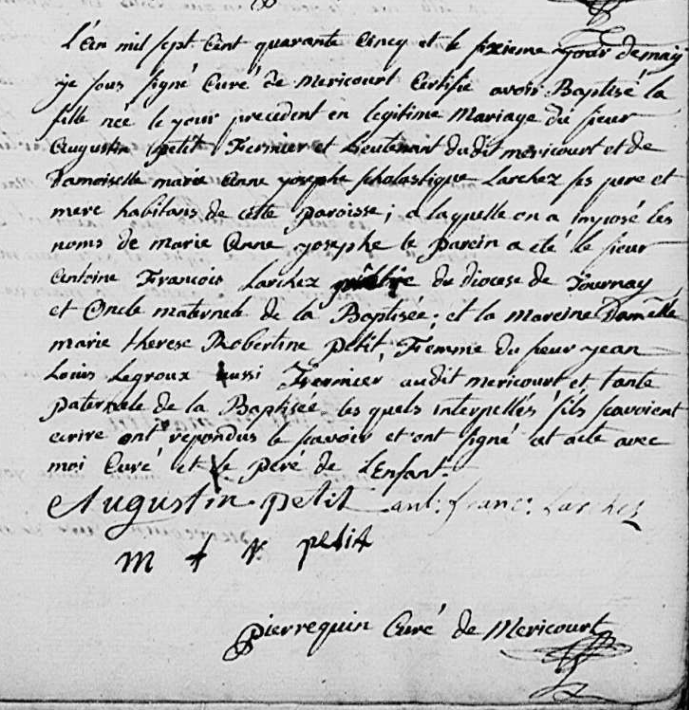 L'an mil sept Cent quarante Cincq et le sixieme jour de maij
je sous signé Curé de Mericourt Certifie avoir Baptisé la
fille née le jour precedent en legitime Mariage du sieur
Augustin petit Fermier et Lieutenant dudit mericourt et de
Damoiselle marie Anne josephe scholastique Larchez ses pere et
mere habitans de cette paroisse; a laquelle on a imposé les
noms de marie Anne josephe le parein a été le sieur
Antoine François Larchez du diocese de Tournay
et Oncle maternele de la Baptisée; et la mareine Dam^elle
marie therese Robertine petit, Fiemme du sieur jean
Louis Legroux aussi Fermier audit mericourt et tante
paternele de la Baptisée les quels interpellés s'ils scavoient
ecrire ont repondus le scavoir et ont signé cet acte avec
moi Curé et le peré de L'Enfant.
Augustin petit ant: franc: Larchez
m t r petit
pierrequin Curé de Mericourt